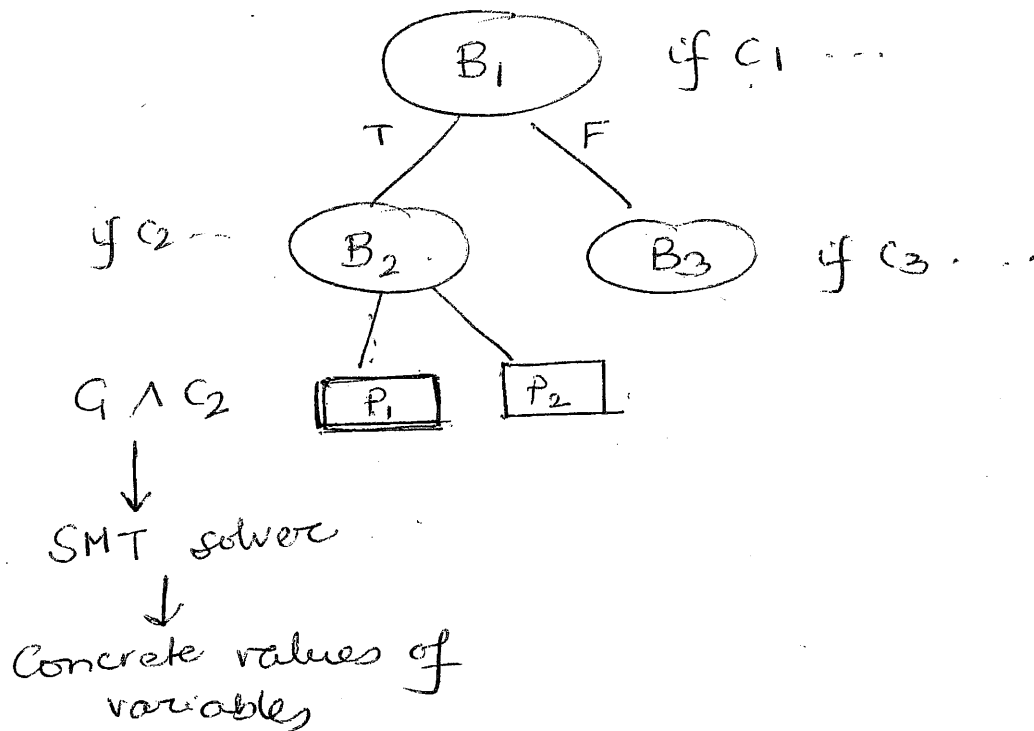 B₁ if C1 ...
T F
if C2 ... B₂ B3 if C3 ....
C₁ ∧ C2 P₁ P₂
SMT solver
Concrete values of
variables